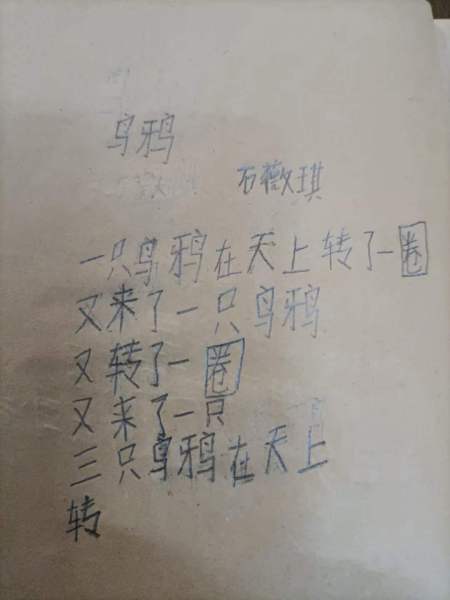 乌鸦
石薇琪
一只乌鸦在天上转了一圈
又来了一只乌鸦
又转了一圈
又来了一只
三只乌鸦在天上
转